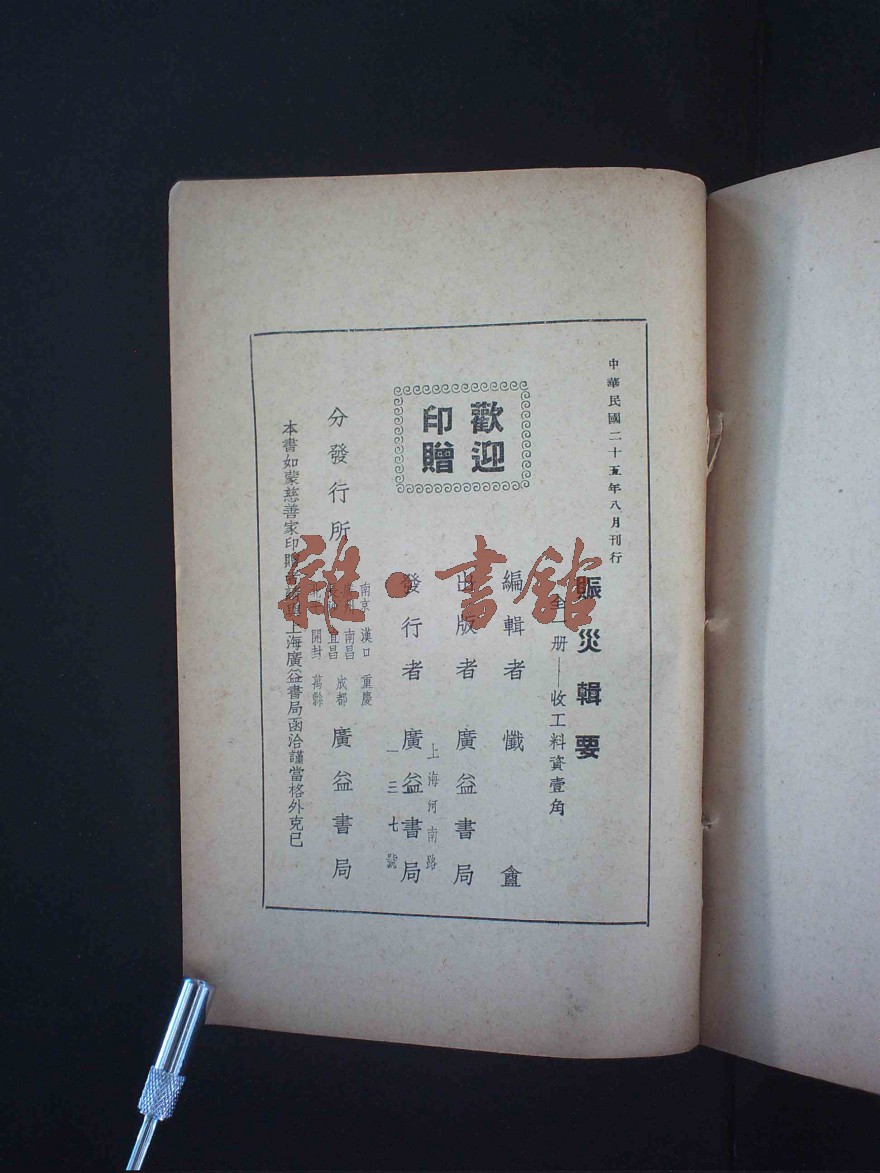 中華民國二十五年八月刊行
賑災輯要
全一册——收工料資壹角
編輯者 懺盦
出版者 廣益書局
上海河南路
發行者 廣益書局
一三七號
歡迎
印贈
分發行所
南京 漢口 重慶
廣州 南昌 成都
長沙 宜昌
北平 開封 萬縣
廣益書局
本書如蒙慈善家印贈上海廣益書局函洽謹當格外克己
雜·書館